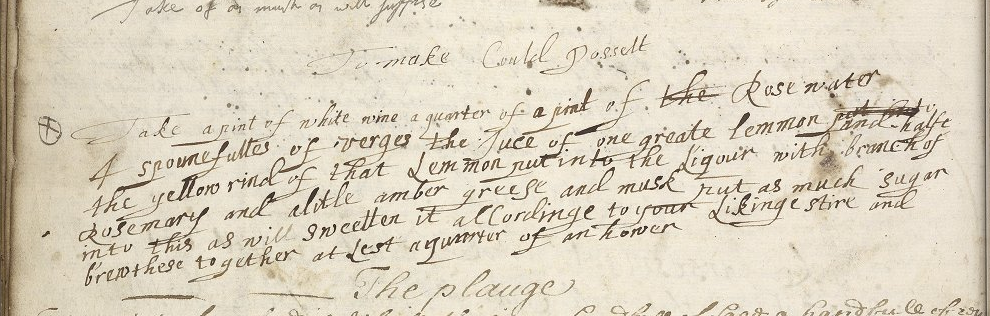 Take of as much as will suffise
To make Could Posselt
Take a pint of white wine a quarter of a pint of the Rose water
4 spounefulles of verges the Juce of one greate Lemmon put and halfe
the yellow rind of that Lemmon put into the Liqour with branch of
Rosemary and alitle amber greese and musk put as much sugar
into this as will sweetten it allcordinge to your Likinge stire and
brew these together at Lest a quarter of an hower
The plauge